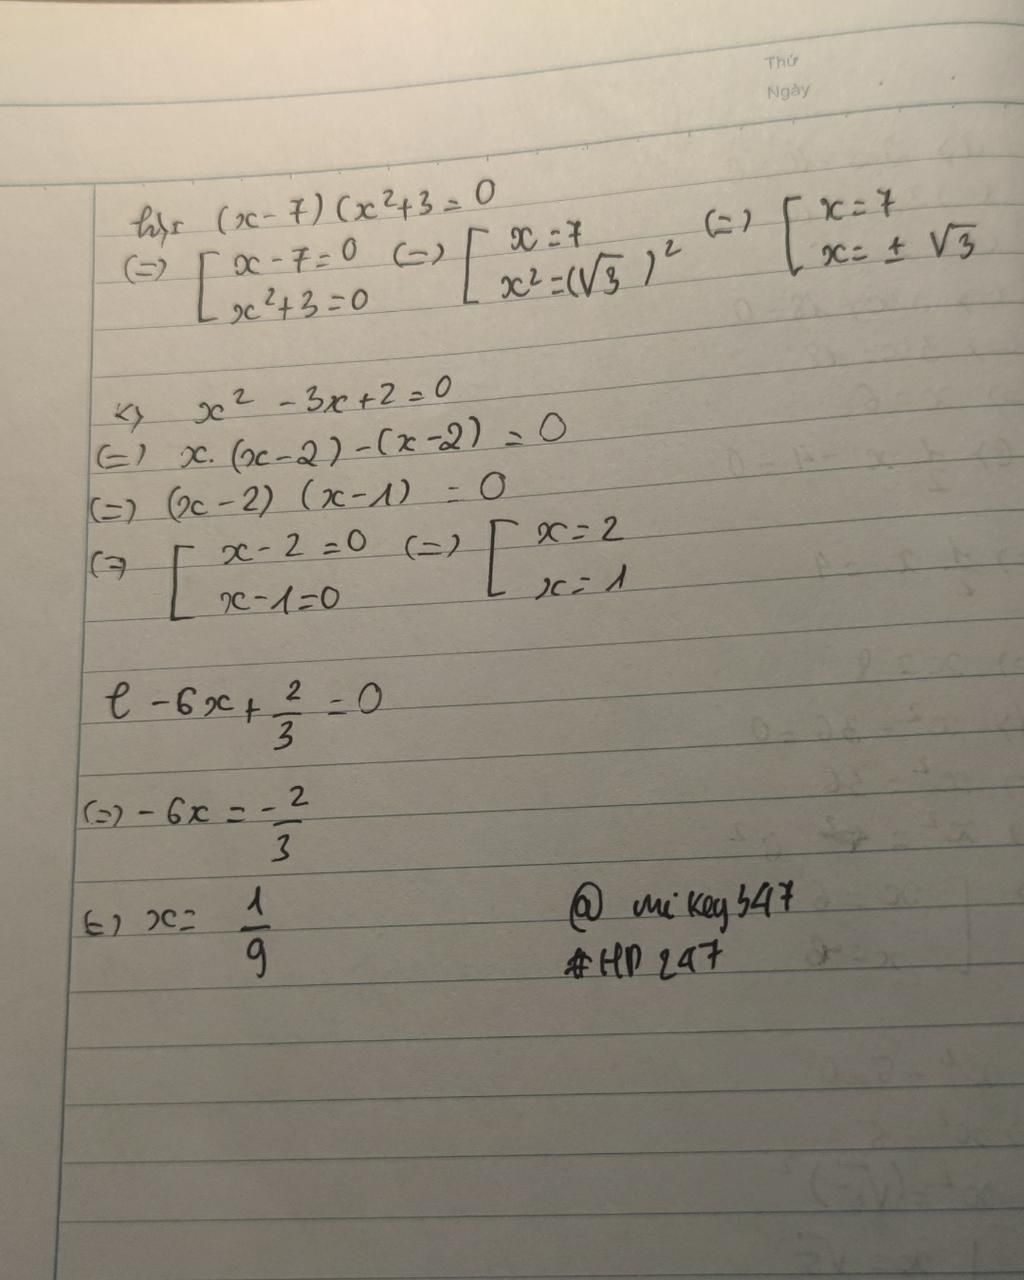 Thứ
Ngày
(x-7)(x²+3=0
(=) [ x-7=0 (=) [ x=7 (=) [ x=7
x²+3=0 x²=(√3)² x=±√3
k) x²-3x+2=0
(=) x.(x-2)-(x-2)=0
(=) (x-2)(x-1)=0
(=) [ x-2=0 (=) [ x=2
x-1=0 x=1
l -6x+2/3=0
(=) -6x=-2/3
(=) x=1/9
@mikey347
#HD247